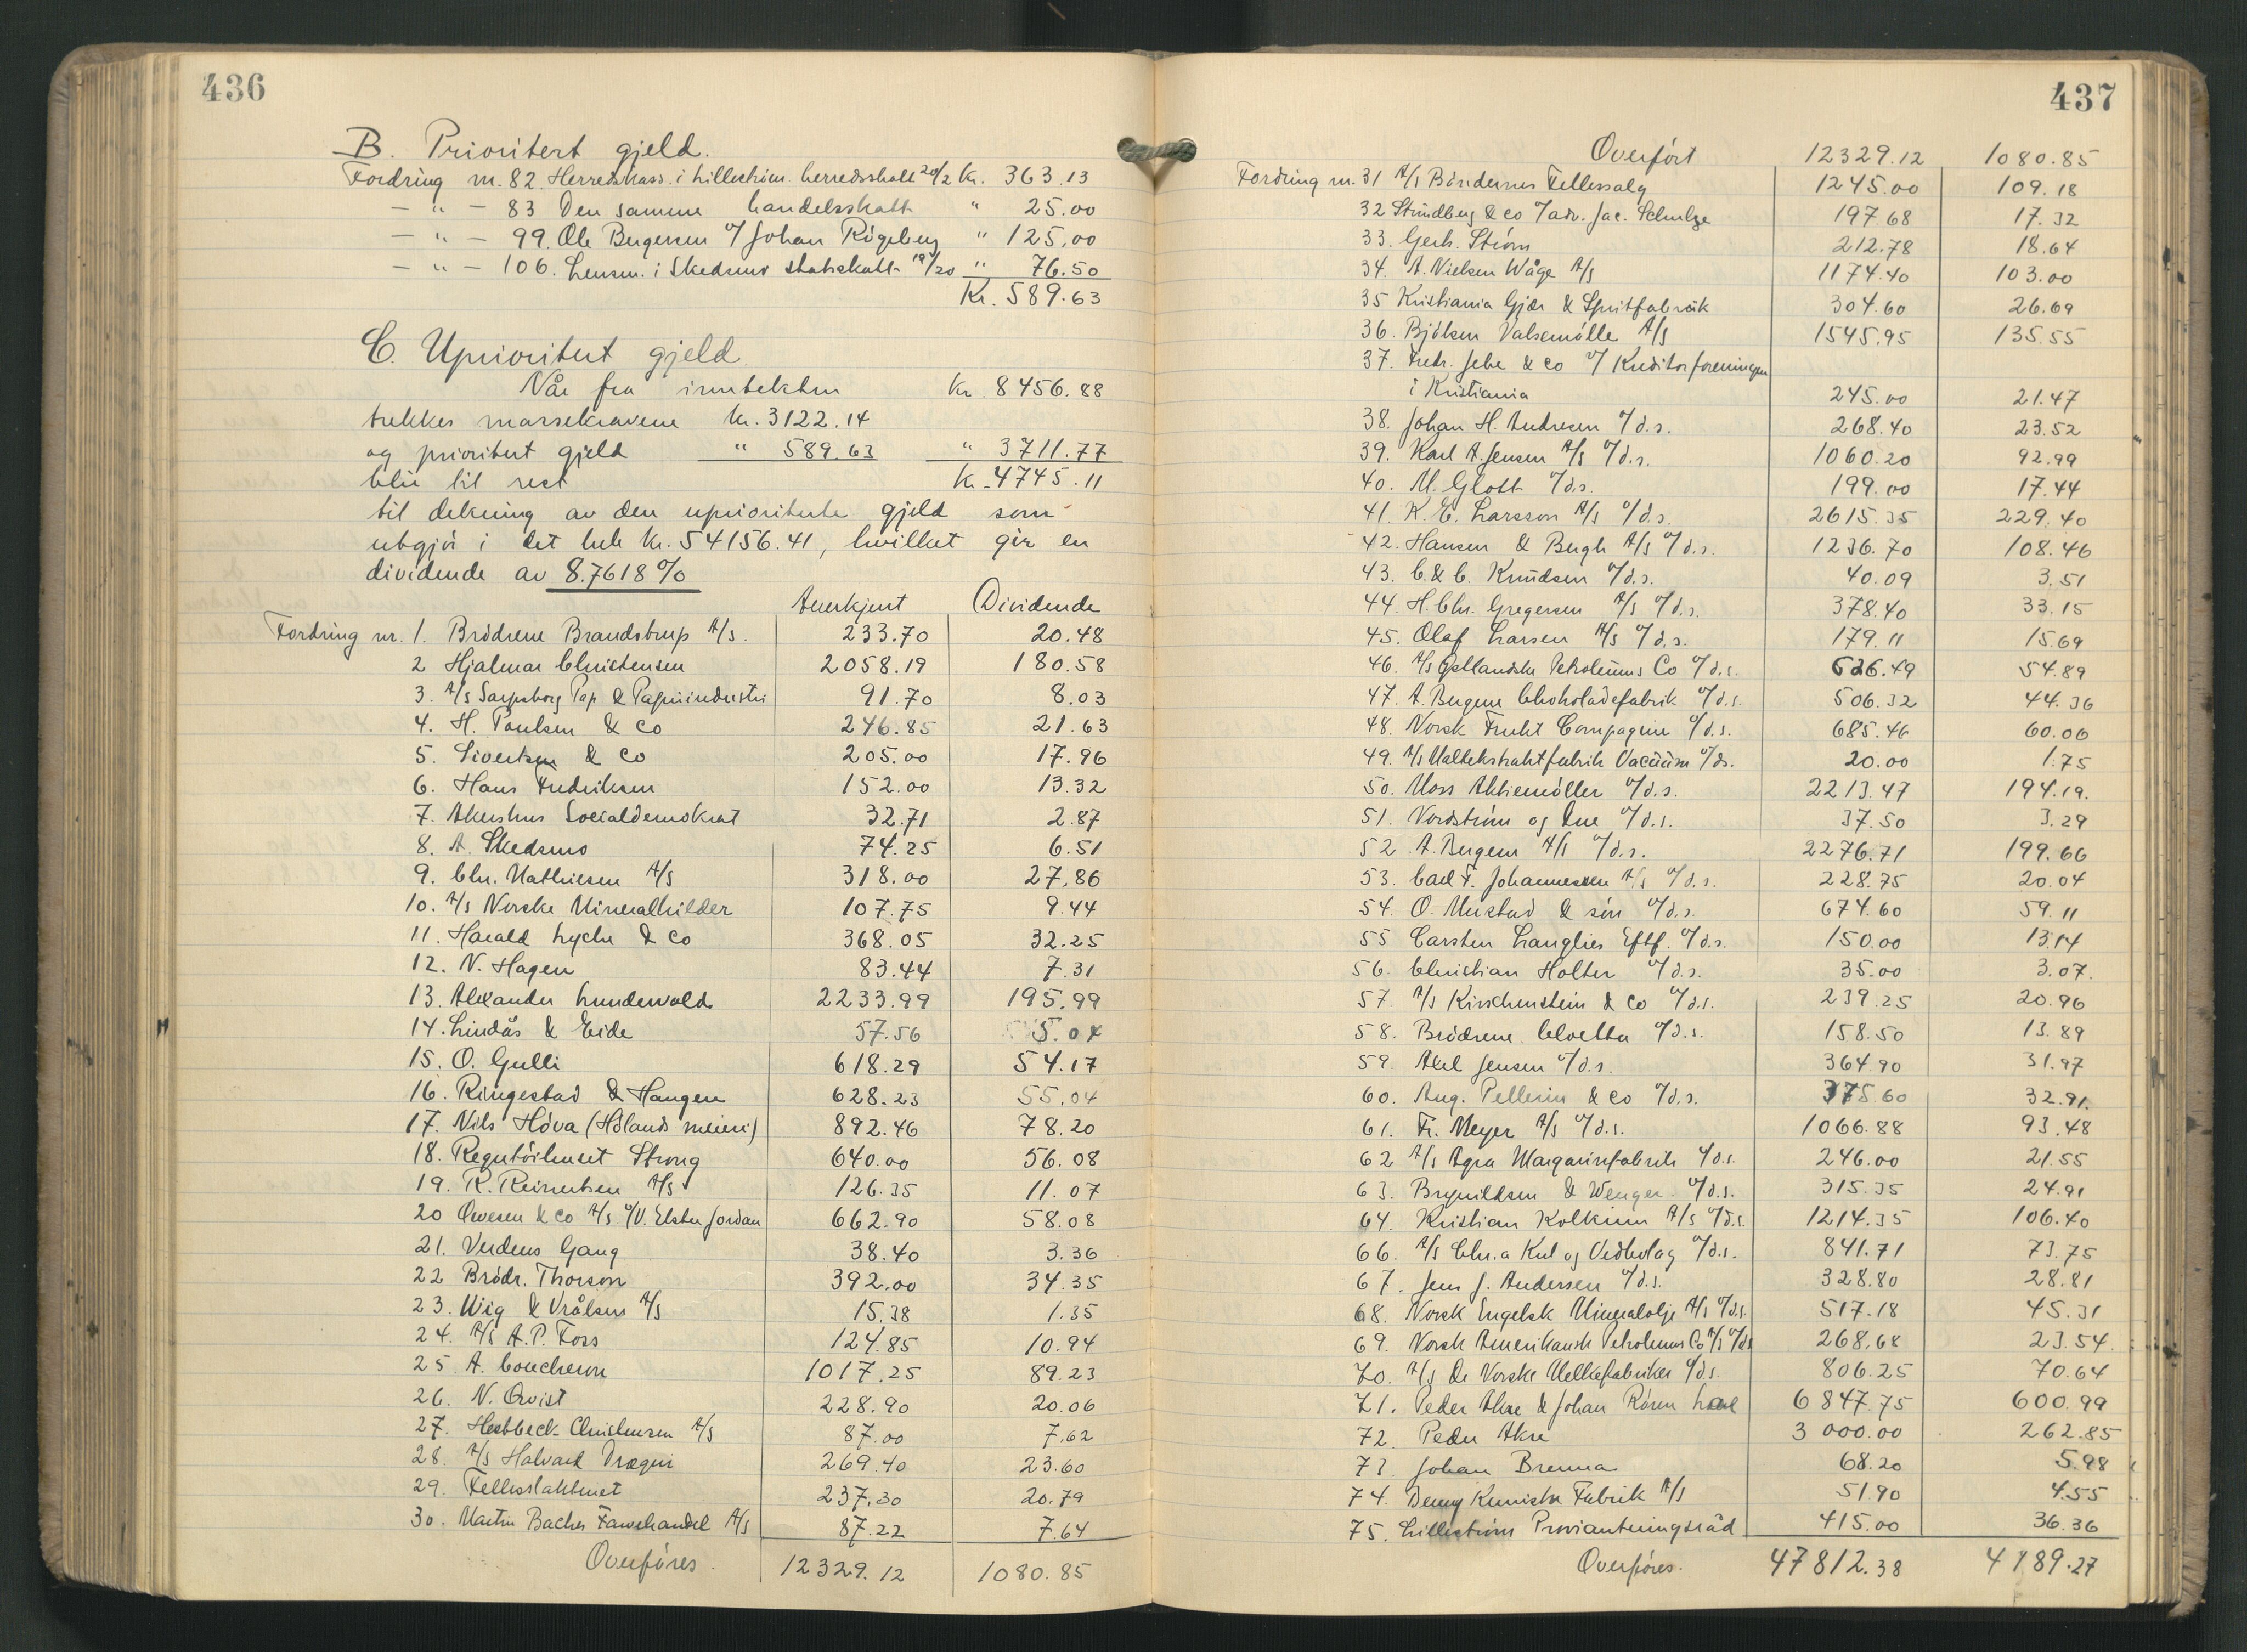 436
B. Prioritert gjeld.
Fordring nr. 82. Herredskass. i Lilleström herredsskatt 20/2 Kr. 363.13
— " — 83 Den samme handelsskatt " 25.00
— " — 99. Ole Bergersen v/ Johan Rögeberg " 125.00
— " — 106. Lensm. i Skedsmo statsskatt 19/20 " 76.50
Kr. 589.63
C. Uprioritert gjeld.
Når fra inntekten Kr. 8456.88
trekkes massekravene kr. 3122.14
og prioritert gjeld " 589.63 " 3711.77
blir til rest Kr. 4745.11
til dekning av den uprioriterte gjeld som
utgjör i det hele kr. 54156.41, hvilket gir en
dividende av 8.7618 %
Anerkjent Dividende
Fordring nr. 1. Brödrene Brandstrup A/S. 233.70 20.48
2 Hjalmar Christensen 2058.19 180.58
3. A/S Sarpsborg Pap & Papirindustri 91.70 8.03
4. H. Poulsen & Co 246.85 21.63
5. Sivertsen & Co 205.00 17.96
6. Hans Fredriksen 152.00 13.32
7. Akershus Socialdemokrat 32.71 2.87
8. A. Skedsmo 74.25 6.51
9. Chr. Mathiesen A/S 318.00 27.86
10. A/S Norske Mineralkilder 107.75 9.44
11. Harald Lyche & Co 368.05 32.25
12. N. Hagen 83.44 7.31
13. Alexander Lundevold 2233.99 195.99
14. Lindås & Eide 57.56 5.04
15. O. Gulli 618.29 54.17
16. Ringestad & Haugen 628.23 55.04
17. Nils Höva (Hölands meieri) 892.46 78.20
18. Regutöihuset Strong 640.00 56.08
19. R. Reinertsen A/S 126.35 11.07
20 Owesen & Co A/S. v/ V. Elster Jordan 662.90 58.08
21. Verdens Gang 38.40 3.36
22 Brödr. Thorson 392.00 34.35
23. Wig & Vrålsen A/S 15.38 1.35
24. A/S A.P. Foss 124.85 10.94
25 A. Coucheron 1017.25 89.23
26. N. Qvist 228.90 20.06
27. Hesbbeck Christensen A/S 87.00 7.62
28. A/S Halvard Drægni 269.40 23.60
29. Fellesslakteriet 237.30 20.79
30. Martin Baches Farvehandel A/S 87.22 7.64
Overföres. 12329.12 1080.85
437
Overfört 12329.12 1080.85
Fordring nr. 31 A/S Böndernes Fellessalg 1245.00 109.18
32 Strindberg & Co v/ adv. Jac. Schulze 197.68 17.32
33. Gerh. Ström 212.78 18.64
34. A. Nielsen Wåge A/S 1174.40 103.00
35 Kristiania Gjær & Spritfabrik 304.60 26.69
36. Bjölsen Valsemölle A/S 1545.95 135.55
37. Fredr. Jebe & Co v/ Kreditorforeningen
i Kristiania 245.00 21.47
38. Johan H. Andresen v/d.s. 268.40 23.52
39. Karl A. Jensen A/S v/d.s. 1060.20 92.99
40. M. Glott v/d.s. 199.00 17.44
41. K. E. Larsson A/S v/d.s. 2615.35 229.40
42. Hansen & Bergh A/S v/d.s. 1236.70 108.46
43. C. & C. Knudsen v/d.s. 40.09 3.51
44. H. Chr. Gregersen A/S v/d.s. 378.40 33.15
45. Olaf Larsen A/S v/d.s. 179.11 15.69
46. A/S Östlandske Petroleums Co v/d.s. 626.49 54.89
47. A. Bergene Chokoladefabrik v/d.s. 506.32 44.36
48. Norsk Frukt Compagnie v/d.s. 685.46 60.06
49. A/S Maltekstraktfabrik Vacuum v/ds. 20.00 1.75
50. Moss Aktiemöller v/d.s. 2213.47 194.19.
51. Nordström og Due v/d.s. 37.50 3.29
52 A. Bergene A/S v/d.s. 2276.71 199.66
53. Carl F. Johannessen A/S v/d.s. 228.75 20.04
54. O. Mustad & sön v/d.s. 674.60 59.11
55 Carsten Langlies Eftf. v/d.s. 150.00 13.14
56. Christian Holter v/d.s. 35.00 3.07.
57. A/S Kirschenstein & Co v/d.s. 239.25 20.96
58. Brödrene Cloetta v/d.s. 158.50 13.89
59. Axel Jensen v/d.s. 364.90 31.97
60. Aug. Pellerin & Co v/d.s. 375.60 32.91.
61. Fr. Meyer A/S v/d.s. 1066.88 93.48
62 A/S Agra Margarinfabrik v/d.s. 246.00 21.55
63. Brynildsen & Wenger. v/d.s. 315.35 24.91
64. Kristian Kolkinn A/S v/d.s. 1214.35 106.40
66. A/S Chr.a Kul og Vedbolag v/d.s. 841.71 73.75
67. Jens J. Andersen v/d.s. 328.80 28.81
68. Norsk Engelsk Mineralolje A/S v/d.s. 517.18 45.31
69. Norsk Amerikansk Petroleums Co A/S v/ds 268.68 23.54
70. A/S De Norske Melkefabriker v/d.s. 806.25 70.64
71. Peder Akre & Johan Rören 6847.75 600.99
72. Peder Akre 3000.00 262.85
73. Johan Brenna 68.20 5.98
74. Denny Kemiske Fabrik A/S 51.90 4.55
75. Lilleströms Provianteringsråd 415.00 36.36
Overföres. 47812.38 4189.27